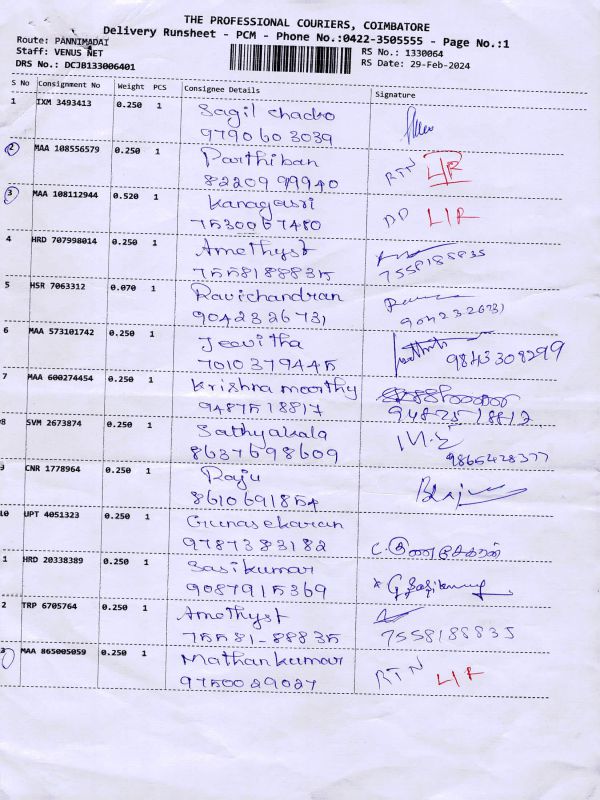 THE PROFESSIONAL COURIERS, COIMBATORE
Delivery Runsheet - PCM - Phone No.:0422-3505555 - Page No.:1
Route: PANNIMADAI
RS No.: 1330064
Staff: VENUS NET
RS Date: 29-Feb-2024
DRS No.: DCJB133006401
S No Consignment No Weight PCS Consignee Details Signature
1 IXM 3493413 0.250 1 Sagil chadro
9790603039
2 MAA 108556579 0.250 1 Parthiban RTN L/R
8220999940
3 MAA 108112944 0.520 1 Kanagasri L/R
7530067480
4 HRD 707998014 0.250 1 Amethyst
7558188835 7558188835
5 HSR 7063312 0.070 1 Ravichandran
9042326731 9042326731
6 MAA 573101742 0.250 1 Jeevitha
7010379445 9843308299
7 MAA 600274454 0.250 1 Krishna moorthy
9487518817 9487518817
8 SVM 2673874 0.250 1 Sathyakala
8637698609 9865428377
9 CNR 1778964 0.250 1 Raju
8610691854
10 UPT 4051323 0.250 1 Gunasekaran
9787383182
1 HRD 20338389 0.250 1 Sasikumar
9087915369
2 TRP 6705764 0.250 1 Amethyst
75581-88835 7558188835
3 MAA 865005059 0.250 1 Mathankumar RTN L/R
9750029027